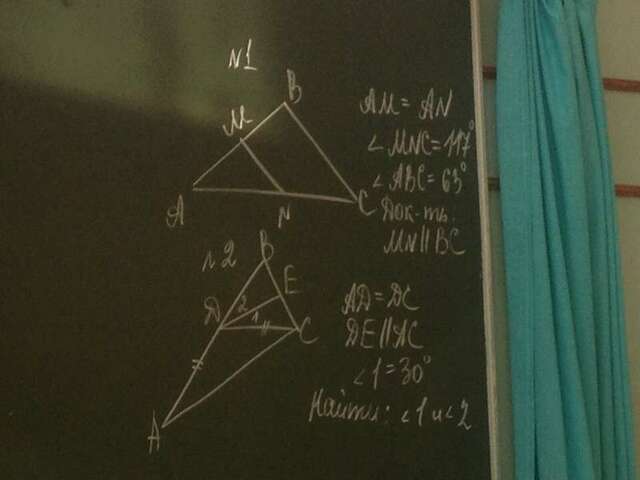 N1
B
M
A
N
C
AM = AN
∠MNC = 117°
∠ABC = 63°
Док-ть:
MN || BC
N2
B
E
D
2
1
C
A
AD = DC
DE || AC
∠1 = 30°
Найти: ∠1 и ∠2